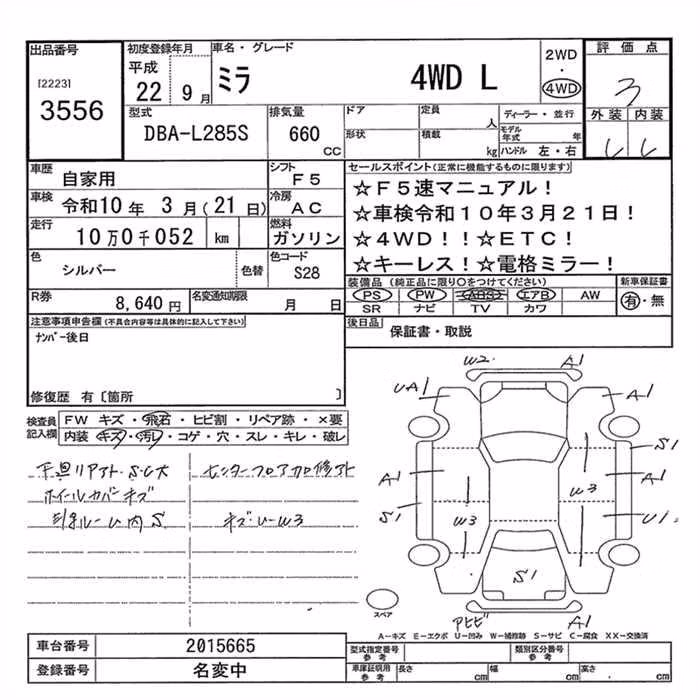 出品番号
[2223]
3556
初度登録年月
平成
22 9月
車名・グレード
ミラ 4WD L
2WD
・
4WD
評価点
3
外装 内装
型式
DBA-L285S
排気量
660
CC
ドア
定員
人
形状
積載
kg
ディーラー・並行
モデル年式 年
ハンドル 左・右
車歴
自家用
シフト
F5
車検
令和10年 3月(21日)
冷房
AC
走行
10万0千052 km
燃料
ガソリン
色
シルバー
色替
色コード
S28
R券
8,640円
名変通知期限
月 日
セールスポイント(正常に機能するものに限ります)
☆F5速マニュアル!
☆車検令和10年3月21日!
☆4WD!!☆ETC!
☆キーレス!☆電格ミラー!
装備品(純正品に限り○をつけてください)
PS PW ABS エアB AW
SR ナビ TV カワ
新車保証書
有・無
後日品
保証書・取説
注意事項申告欄(不具合内容等は具体的に記入して下さい)
ナンバー後日
修復歴 有〔箇所 〕
検査員記入欄
FW キズ・飛石・ヒビ割・リペア跡・×要
内装 キズ・汚レ・コゲ・穴・スレ・キレ・破レ
ホイールカバーキズ
W2
A1
UA1
A1
S1
A1
A1
W3
S1
W3
U1
S1
A1
スペア
A―キズ E―エクボ U―凹み W―補修跡 S―サビ C―腐食 XX―交換済
車台番号
2015665
登録番号
名変中
型式指定番号
参考
類別区分番号
参考
車庫証明用
参考
長さ cm
幅 cm
高さ cm